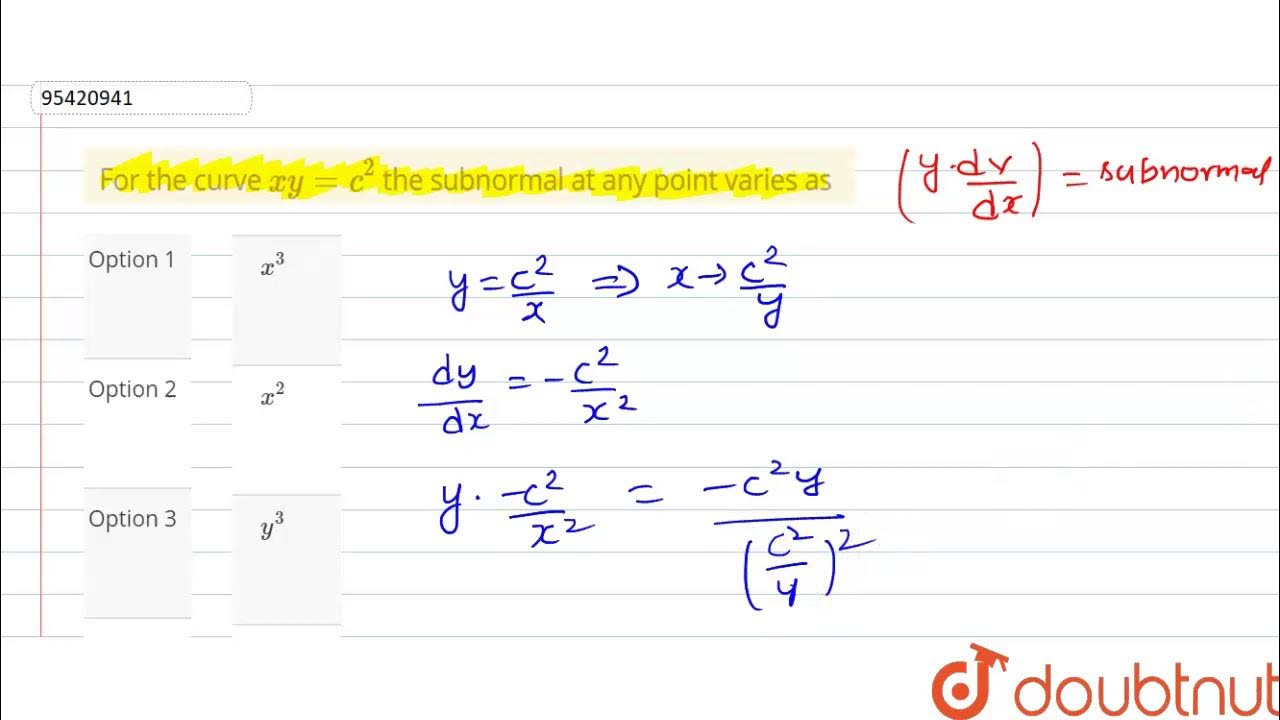 95420941
For the curve xy = c² the subnormal at any point varies as
(y · dy/dx) = subnormal
Option 1 x³
y = c²/x ⇒ x → c²/y
Option 2 x²
dy/dx = - c²/x²
Option 3 y³
y · -c²/x² = -c²y/(c²/y)²
doubtnut